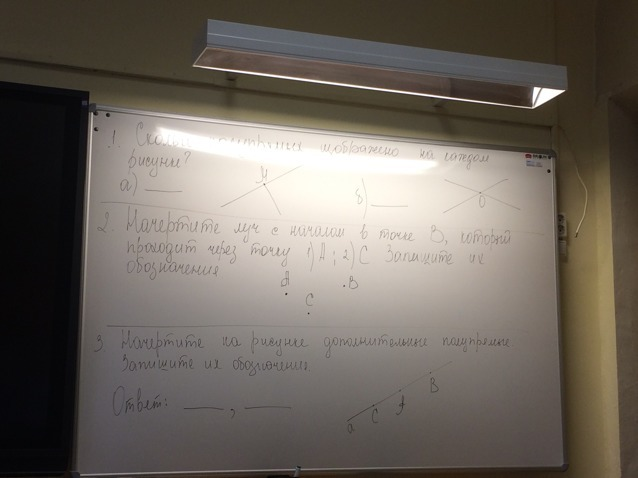 1. Сколько полупрямых изображено на каждом
рисунке?
а) ____ М б) ____ О
2. Начертите луч с началом в точке В, который
проходит через точку 1) А; 2) С Запишите их
обозначения
А В
С
3. Начертите на рисунке дополнительные полупрямые
Запишите их обозначения
Ответ: ____ , ____
а С А В